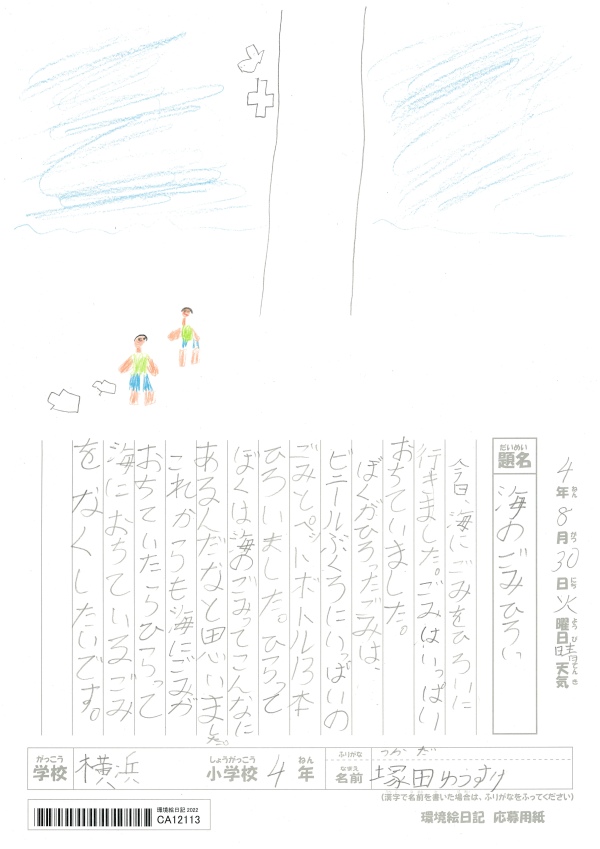 4年8月30日火曜日晴天気
ねん がつ にち ようび てんき
だいめい
題名 海のごみひろい
今日、海にごみをひろいに
行きました。ごみは、いっぱい
おちていました。
ぼくがひろったごみは、
ビニールぶくろにいっぱいの
ごみとペットボトル13本
ひろいました。ひろって
ぼくは海のごみってこんなに
あるんだなと思いました。
これからも海にごみが
おちていたらひろって
海におちているごみ
をなくしたいです。
がっこう しょうがっこう ねん
学校 横浜 小学校 4年
ふりがな つかだ
なまえ
名前 塚田ゆうすけ
(漢字で名前を書いた場合は、ふりがなをふってください)
環境絵日記 2022
CA12113
環境絵日記 応募用紙